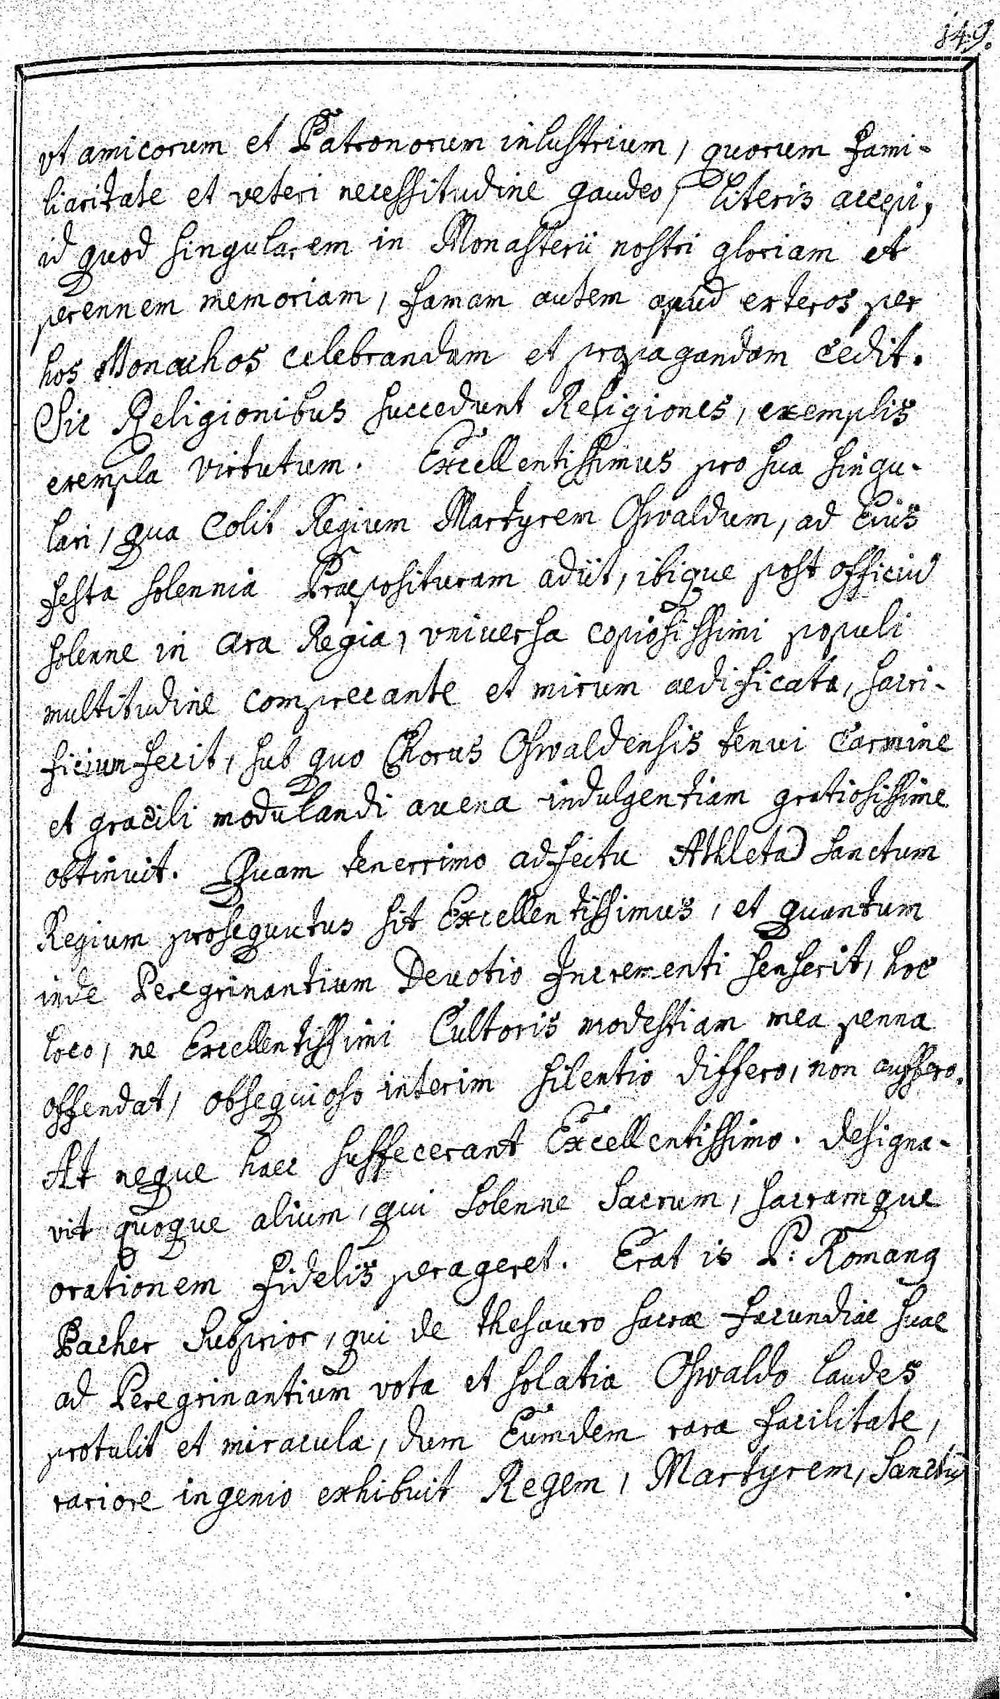 149.
vt amicorum et Patronorum inlustrium, quorum fami-
liaritate et veteri necessitudine gaudeo, literis accepi,
id quod singularem in Monasterii nostri gloriam et
perennem memoriam, famam autem apud exteros per
hos Monachos celebrandam et propagandam cedit.
Sic Religionibus succedunt Religiones, exemplis
exempla virtutum. Excellentissimus pro sua singu-
lari, qua colit Regium Martyrem Oswaldum, ad Eius
festa solennia Praeposituram adiit, ibique post officiū
solenne in Ara Regia, vniversa copiosissimi populi
multitudine comprecante et mirum aedificata, sacri-
ficium fecit, sub quo Chorus Oswaldensis tenui Carmine
et gracili modulandi avena indulgentiam gratiosissime
obtinuit. Quam tenerrimo adfectu Athletā Sanctum
Regium prosequutus sit Excellentissimus, et quantum
inde Peregrinantium Devotio Incrementi senserit, hoc
loco, ne Excellentissimi Cultoris modestiam mea penna
offendat, obsequioso interim silentio differo, non auffero.
At neque haec suffecerant Excellentissimo. Designa-
vit quoque alium, qui solenne Sacrum, sacramque
orationem fidelis perageret. Erat is P: Romanq
Pacher Subprior, qui de thesauro sacrae facundiae suae
ad Peregrinantium vota et solatia Oswaldo laudes
protulit et miracula, dum Eumdem rara facilitate,
rariore ingenio exhibuit Regem, Martyrem, Sanctū